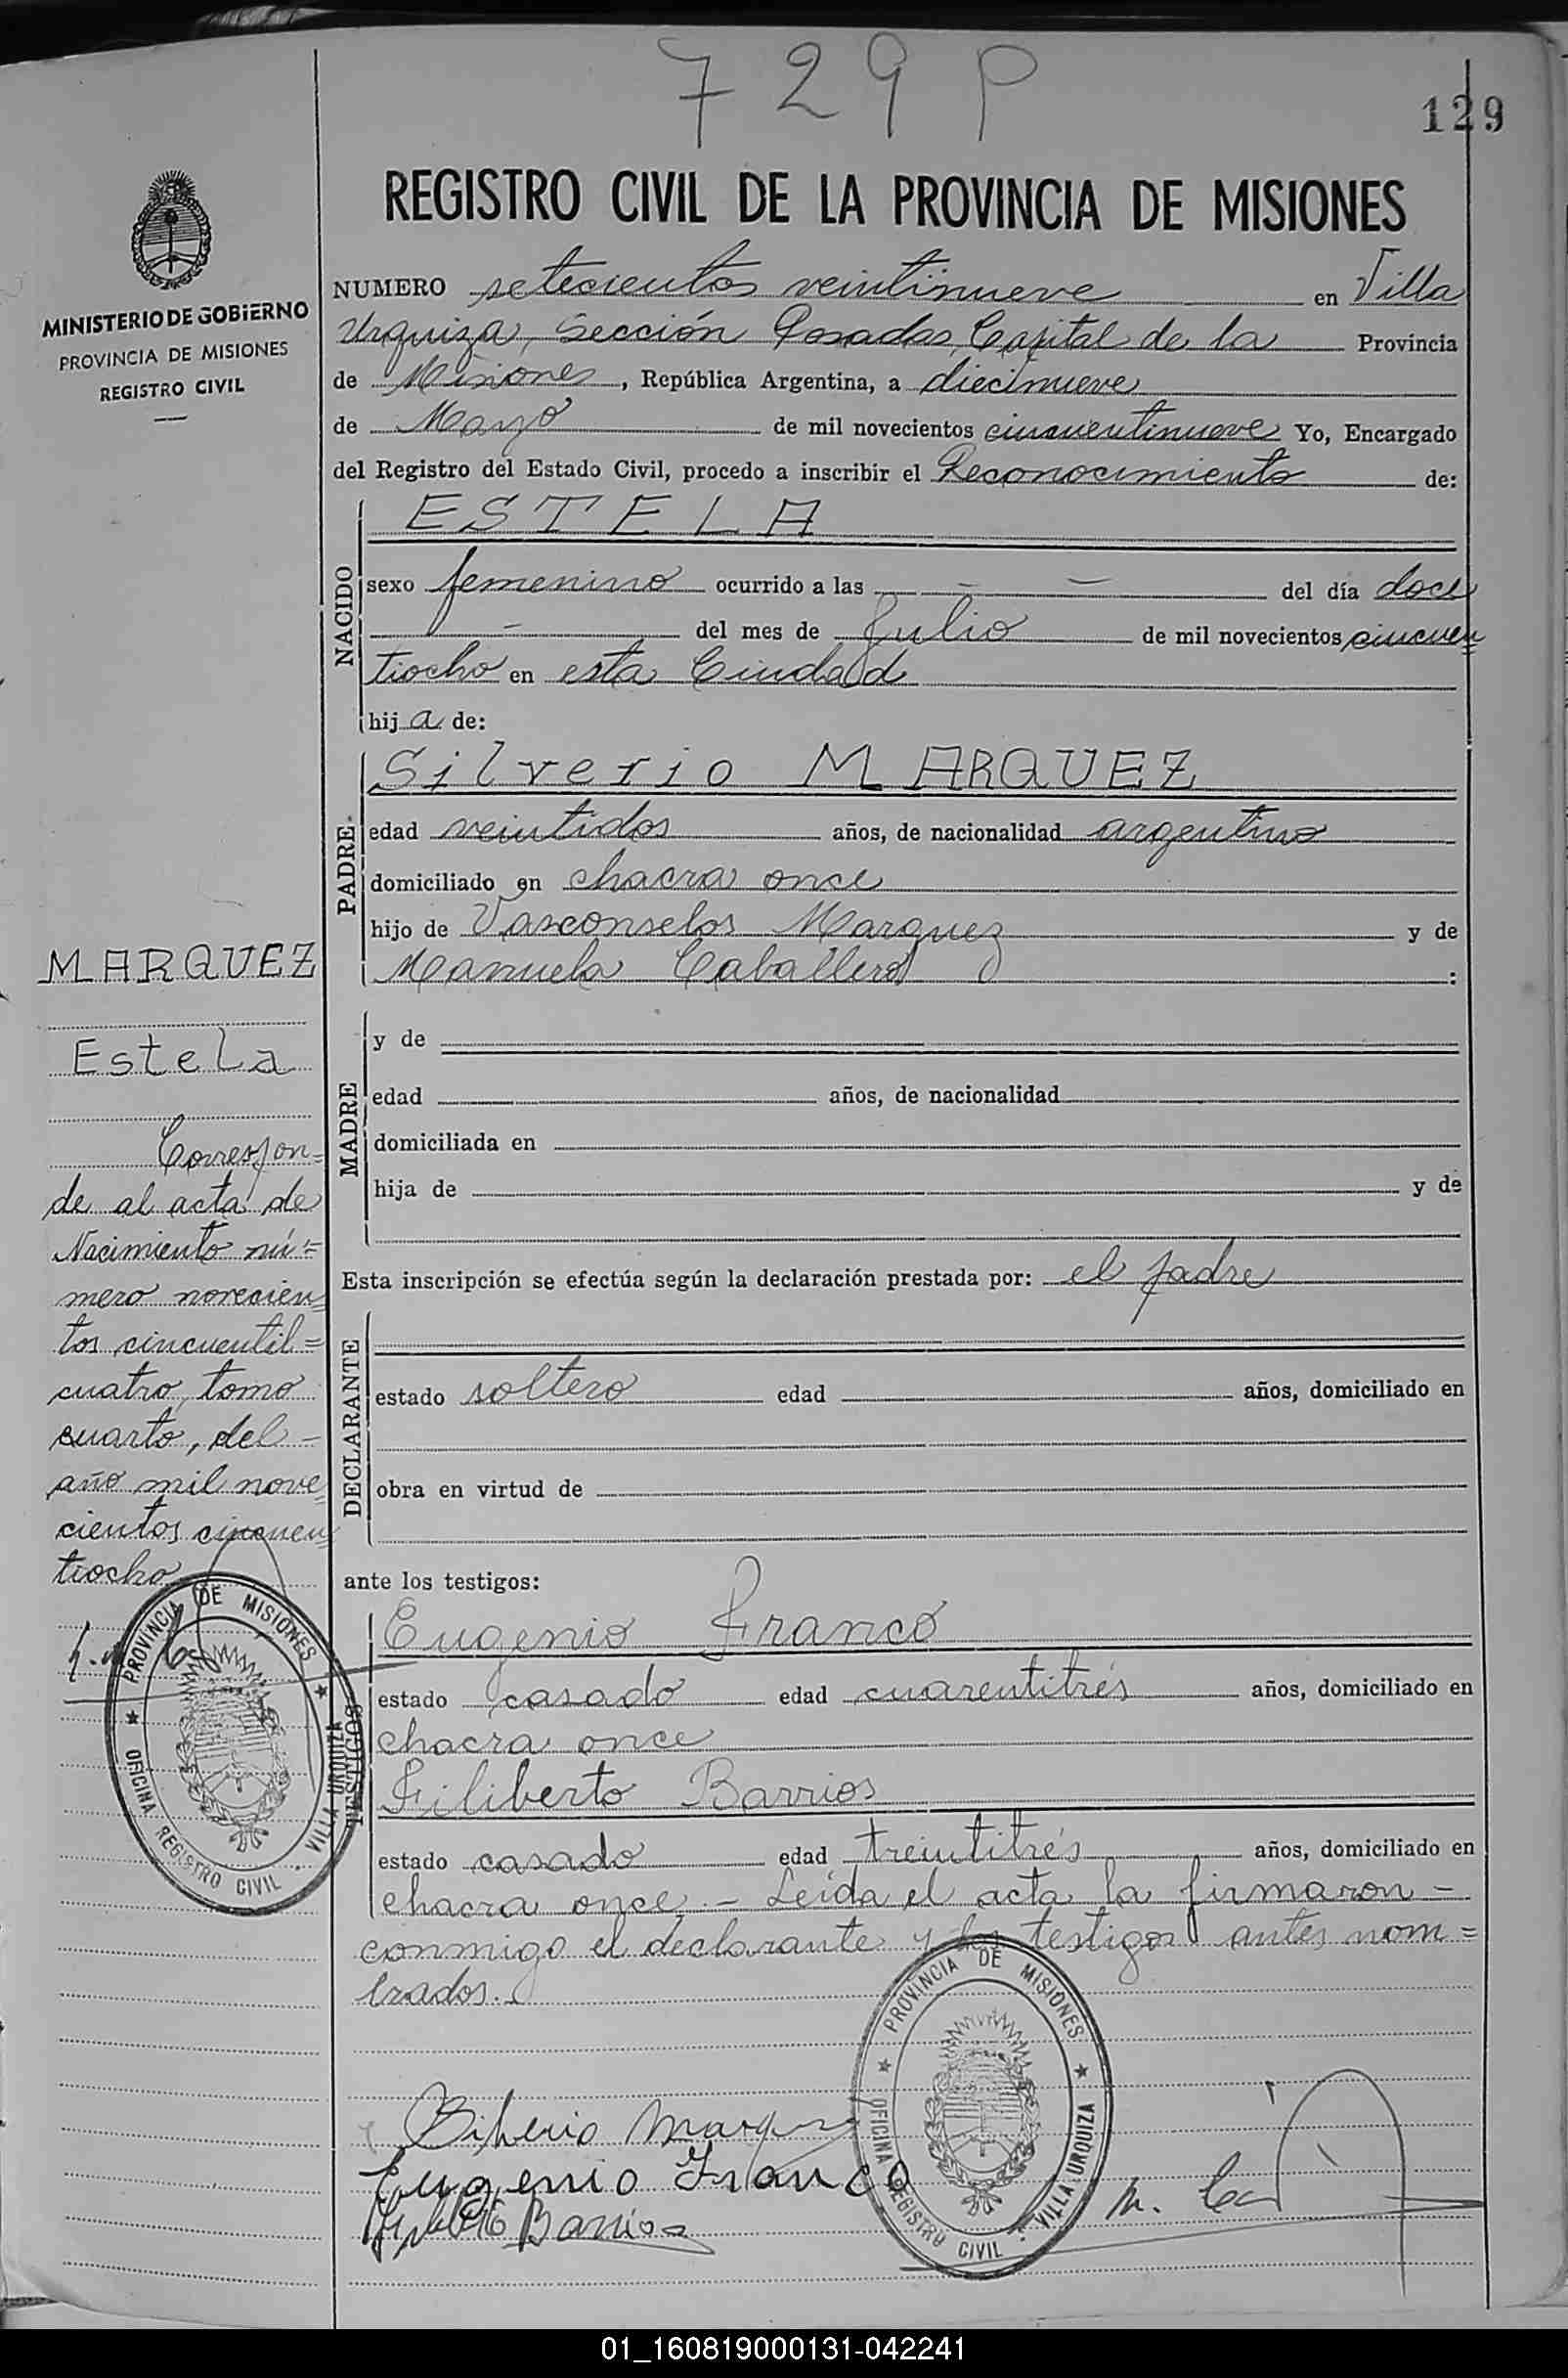 729 P
129
REGISTRO CIVIL DE LA PROVINCIA DE MISIONES
MINISTERIO DE GOBIERNO
PROVINCIA DE MISIONES
REGISTRO CIVIL
NUMERO setecientos veintinueve en Villa
Urquiza, Sección Posadas, Capital de la Provincia
de Misiones, República Argentina, a diecinueve
de Mayo de mil novecientos cincuentinueve Yo, Encargado
del Registro del Estado Civil, procedo a inscribir el Reconocimiento de:
NACIDO
ESTELA
sexo femenino ocurrido a las — — del día doce
— del mes de Julio de mil novecientos cincuen=
tiocho en esta Ciudad
hija de:
PADRE
Silverio MARQUEZ
edad veintidos años, de nacionalidad argentino
domiciliado en chacra once
hijo de Vasconselos Marquez y de
Manuela Caballero :
MADRE
y de
edad años, de nacionalidad
domiciliada en
hija de y de
Esta inscripción se efectúa según la declaración prestada por: el padre
DECLARANTE
estado soltero edad años, domiciliado en
obra en virtud de
ante los testigos:
TESTIGOS
Eugenio Franco
estado casado edad cuarentitrés años, domiciliado en
chacra once
Filiberto Barrios
estado casado edad treintitrés años, domiciliado en
chacra once.- Leída el acta la firmaron -
conmigo el declarante y los testigos antes nom=
brados.-
MARQUEZ
Estela
Correspon=
de al acta de
Nacimiento nú=
mero novecien=
tos cincuenti=
cuatro, tomo
cuarto, del -
año mil nove=
cientos cincuen
tiocho
PROVINCIA DE MISIONES
OFICINA REGISTRO CIVIL · VILLA URQUIZA
Silverio Marquez
Eugenio Franco
Filiberto Barrios
PROVINCIA DE MISIONES
OFICINA REGISTRO CIVIL · VILLA URQUIZA
01_160819000131-042241